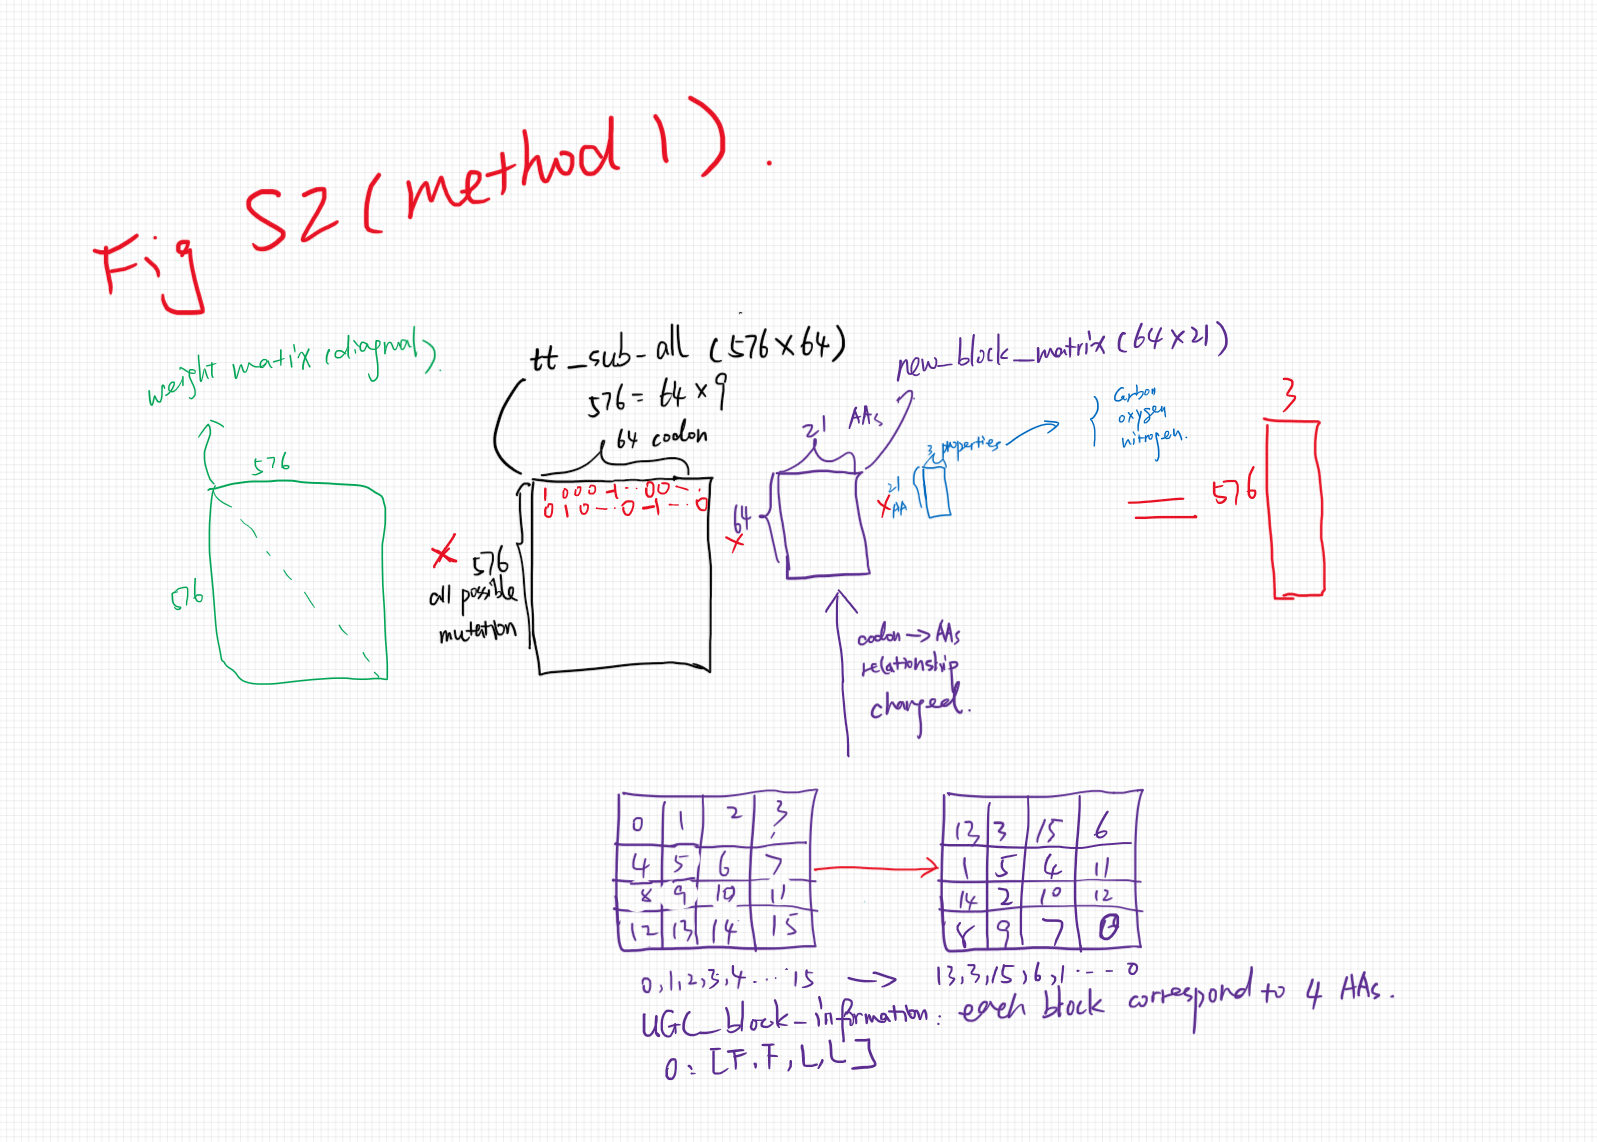 Fig S2 (method 1).
weight matix (diagnal).
576
576
tt_sub-all (576×64)
576 = 64 × 9
64 codon
1 0 0 0 -1 ·· 0 0 - ·
0 1 0 - ·· 0 -1 - ·· 0
× 576
all possible
mutation
new_block_matrix (64×21)
21 AAs
64
×
3 properties
21
× AA
Carbon
oxygen
nitrogen.
3
= 576
codon → AAs
relationship
changed.
0 1 2 3
4 5 6 7
8 9 10 11
12 13 14 15
13 3 15 6
1 5 4 11
14 2 10 12
8 9 7 0
0,1,2,3,4 ···· 15 → 13,3,15,6,1 ---- 0
UGC_block-information: each block correspond to 4 AAs.
0: [F, F, L, L]